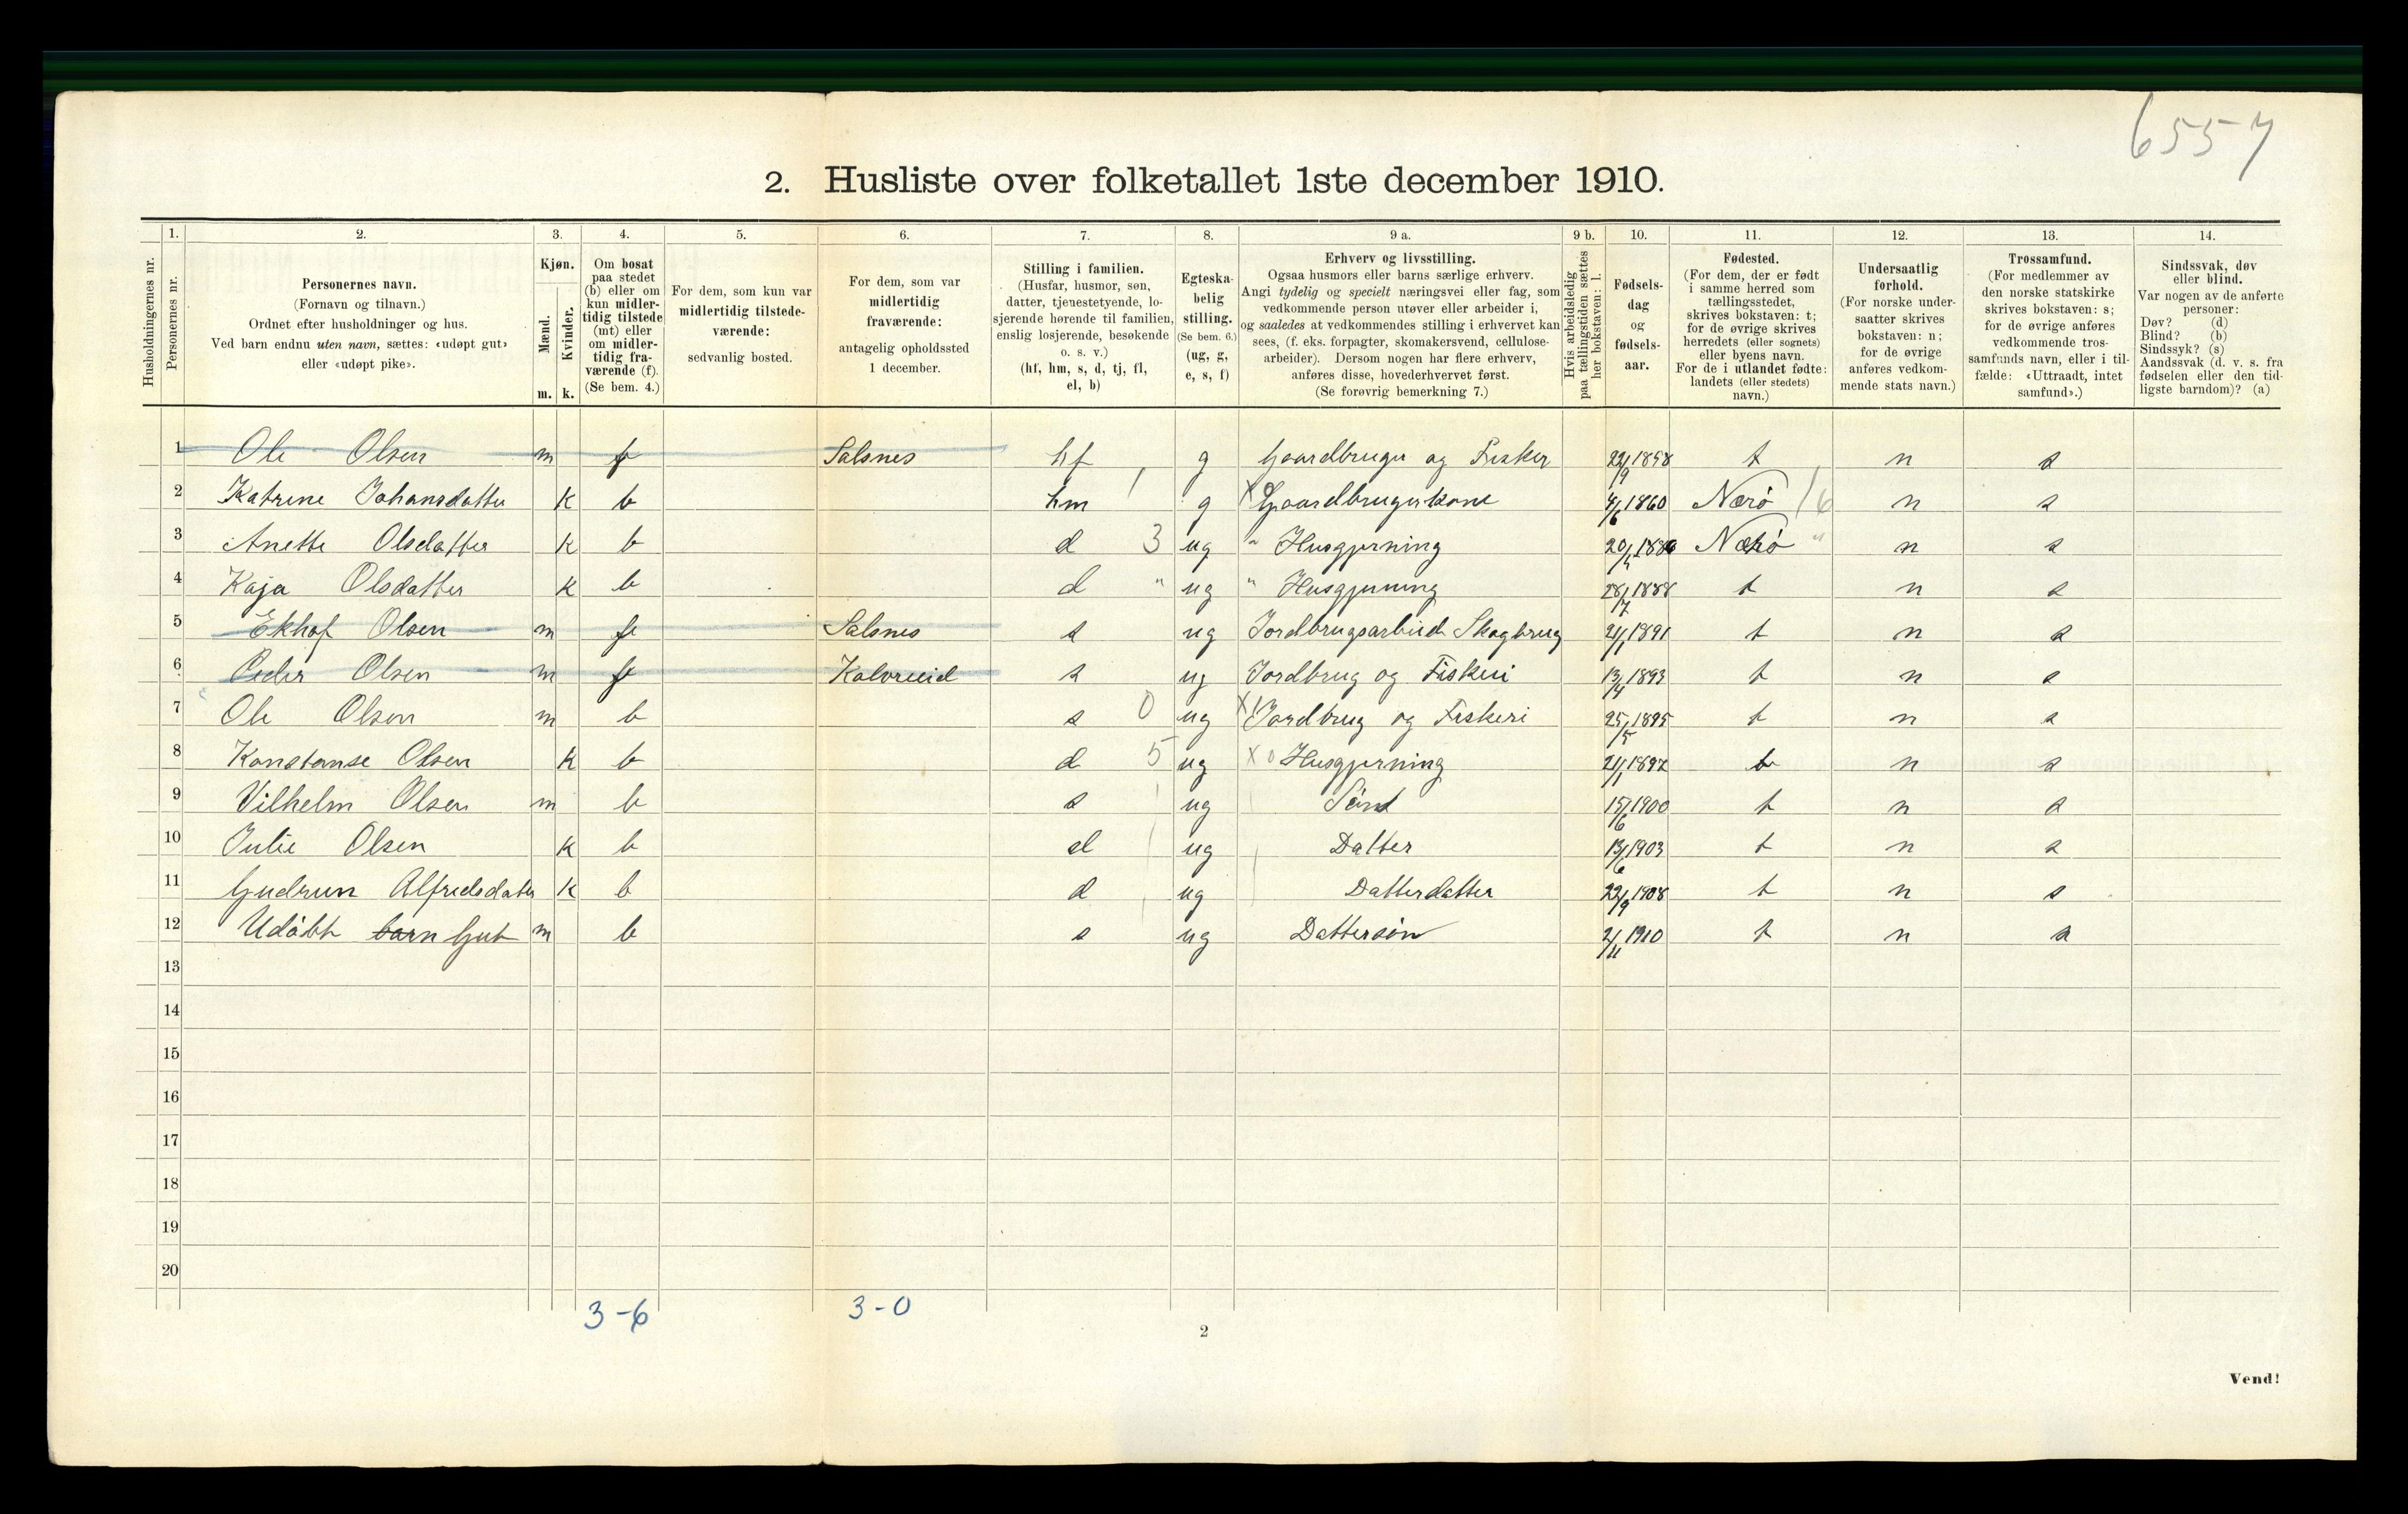 6557
2. Husliste over folketallet 1ste december 1910.
Husholdningernes nr.
1. Personernes nr.
2. Personernes navn. (Fornavn og tilnavn.) Ordnet efter husholdninger og hus. Ved barn endnu uten navn, sættes: «udøpt gut» eller «udøpt pike».
3. Kjøn. Mænd. m. Kvinder. k.
4. Om bosat paa stedet (b) eller om kun midlertidig tilstede (mt) eller om midlertidig fraværende (f). (Se bem. 4.)
5. For dem, som kun var midlertidig tilstedeværende: sedvanlig bosted.
6. For dem, som var midlertidig fraværende: antagelig opholdssted 1 december.
7. Stilling i familien. (Husfar, husmor, søn, datter, tjenestetyende, losjerende hørende til familien, enslig losjerende, besøkende o. s. v.) (hf, hm, s, d, tj, fl, el, b)
8. Egteskabelig stilling. (Se bem. 6.) (ug, g, e, s, f)
9 a. Erhverv og livsstilling. Ogsaa husmors eller barns særlige erhverv. Angi tydelig og specielt næringsvei eller fag, som vedkommende person utøver eller arbeider i, og saaledes at vedkommendes stilling i erhvervet kan sees, (f. eks. forpagter, skomakersvend, cellulosearbeider). Dersom nogen har flere erhverv, anføres disse, hovederhvervet først. (Se forøvrig bemerkning 7.)
9 b. Hvis arbeidsledig paa tællingstiden sættes her bokstaven: l.
10. Fødselsdag og fødselsaar.
11. Fødested. (For dem, der er født i samme herred som tællingsstedet, skrives bokstaven: t; for de øvrige skrives herredets (eller sognets) eller byens navn. For de i utlandet fødte: landets (eller stedets) navn.)
12. Undersaatlig forhold. (For norske undersaatter skrives bokstaven: n; for de øvrige anføres vedkommende stats navn.)
13. Trossamfund. (For medlemmer av den norske statskirke skrives bokstaven: s; for de øvrige anføres vedkommende trossamfunds navn, eller i tilfælde: «Uttraadt, intet samfund».)
14. Sindssvak, døv eller blind. Var nogen av de anførte personer: Døv? (d) Blind? (b) Sindssyk? (s) Aandssvak (d. v. s. fra fødselen eller den tidligste barndom)? (a)
1 Ole Olsen m f Salsnes hf g Gaardbruger og Fisker 22/9 1858 t n s
2 Katrine Johansdatter k b hm 1 g X Gaardbrugerkone 4/6 1860 Nærø n s
3 Anette Olsdatter k b d 3 ug " Husgjerning Nærø " n s
4 Kaja Olsdatter k b d " ug " Husgjerning 28/7 1888 t n s
5 Ekhof Olsen m f Salsnes s ug Jordbrugsarbeide Skogbrug 21/1 1891 t n s
6 Peder Olsen m f Kalvreid s ug Jordbrug og Fiskeri 13/4 1893 t n s
7 Ole Olsen m b s 0 ug X Jordbrug og Fiskeri 25/5 1895 t n s
8 Konstanse Olsen k b d 5 ug X 0 Husgjerning 21/1 1897 t n s
9 Vilhelm Olsen m b s ug Sønd 15/6 1900 t n s
10 Julie Olsen k b d ug Datter 13/6 1903 t n s
11 Gudrun Alfredsdater k b d ug Datterdatter 22/9 1908 t n s
12 Udøbt barn Gut m b s ug Dattersøn 2/11 1910 t n s
13
14
15
16
17
18
19
20
3-6 3-0
2
Vend!